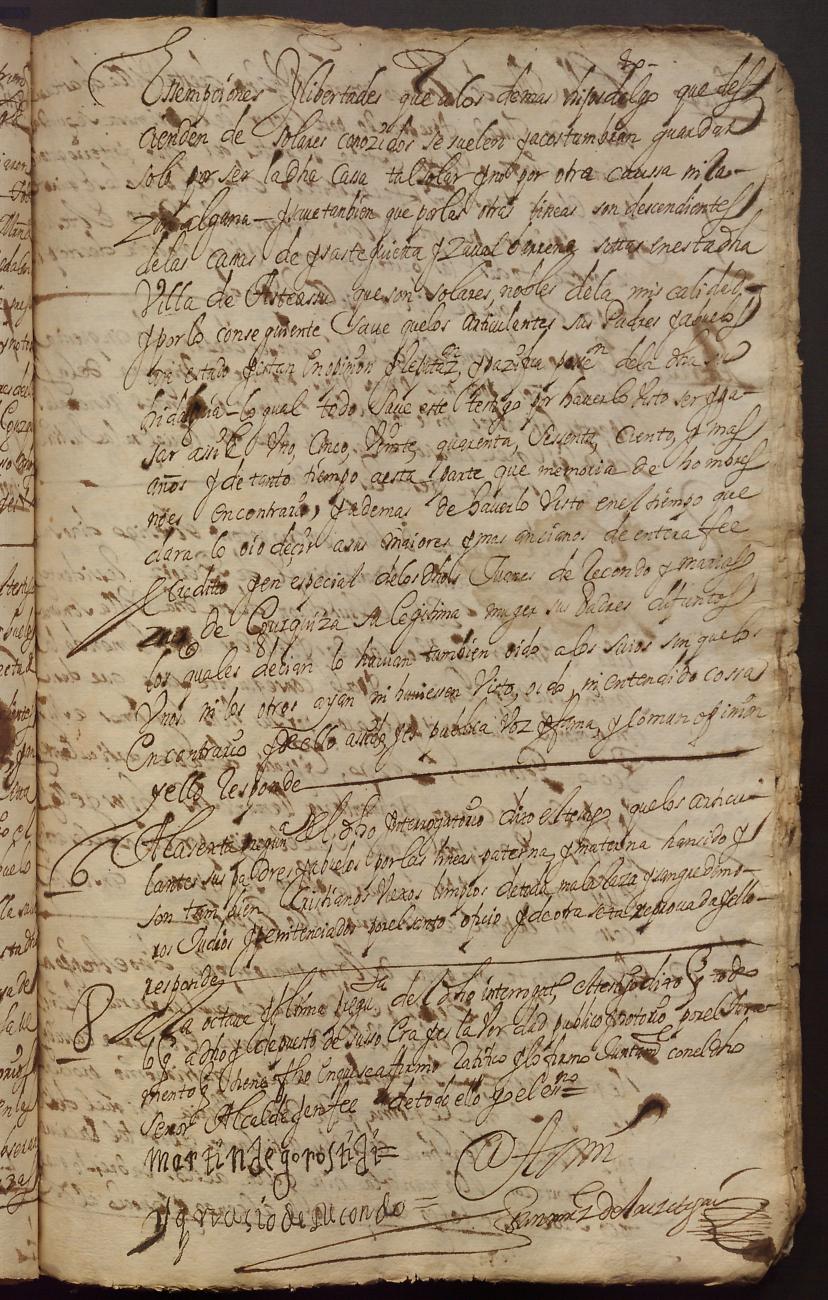 Essempciones y libertades que a los demas hijosdalgo que des
cienden de solares conozidos se suelen y acostumbran guardar
solo por ser la dha Cassa tal solar y no por otra caussa ni ra-
zon alguna - y save tambien que por las otras lineas son descendientes
de las casas de y sitas en esta dha
Villa de Asteassu que son solares, nobles de la mis calidad,
y por lo consiguiente Save que los articulantes sus Padres y abuelos
han estado y estan en opinion y pazifica posen de la dha su
hidalguia - lo qual todo save este testigo por haverlo visto ser y pa-
sar assi de Uno, Cinco, Veinte, quarenta, sessenta, ciento, y mas
años y de tanto tiempo aesta parte que memoria de hombres
no es encontrario, y ademas de haverlo visto en el tiempo que
dara lo oio deçir a sus maiores y mas ancianos de entera fee
y Credito y en especial de los dhos Juanes de Recondo y Maria
de Gourquiza su legitima muger sus Padres difuntos
los quales deçian lo havian tambien oido a los suios sin que los
Unos ni los otros ayan ni huviesen visto, oido, ni entendido cossa
En contrario y de ello a sido y es publica voz y fama, y coman opinion
y ello Responde
6 A la sexta pregunta del dho ynterrogatorio dixo el testigo que los articu-
lantes sus padres y abuelos por las lineas paterna, y materna han sido y
son tambien Cristianos viexos limpios de toda mala raza y sangre de mo-
ros Judios y penitenciados por el santo oficio y de otra seta reprovada y ello
responde
8 A la octava y ultima pregta del dho interrogato el testigo dixo q todo
lo q a dho y depuesto de susso Era y es la verdad publico y notorio por el Jura-
mento q tiene fho En que se affirmo Ratifico y lo firmo Juntamte con el dho
Señor Alcalde y en fee de todo ello yo el esno =
Martin de gorostidi =
ygnacio de Recondo =